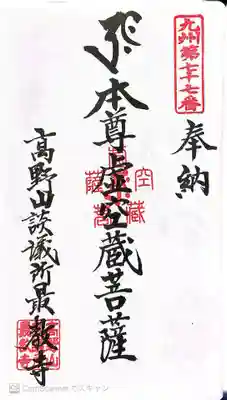 九州第七十七番
奉納
本尊虚空蔵菩薩
高野山談議所最教寺
CamScanner でスキャン